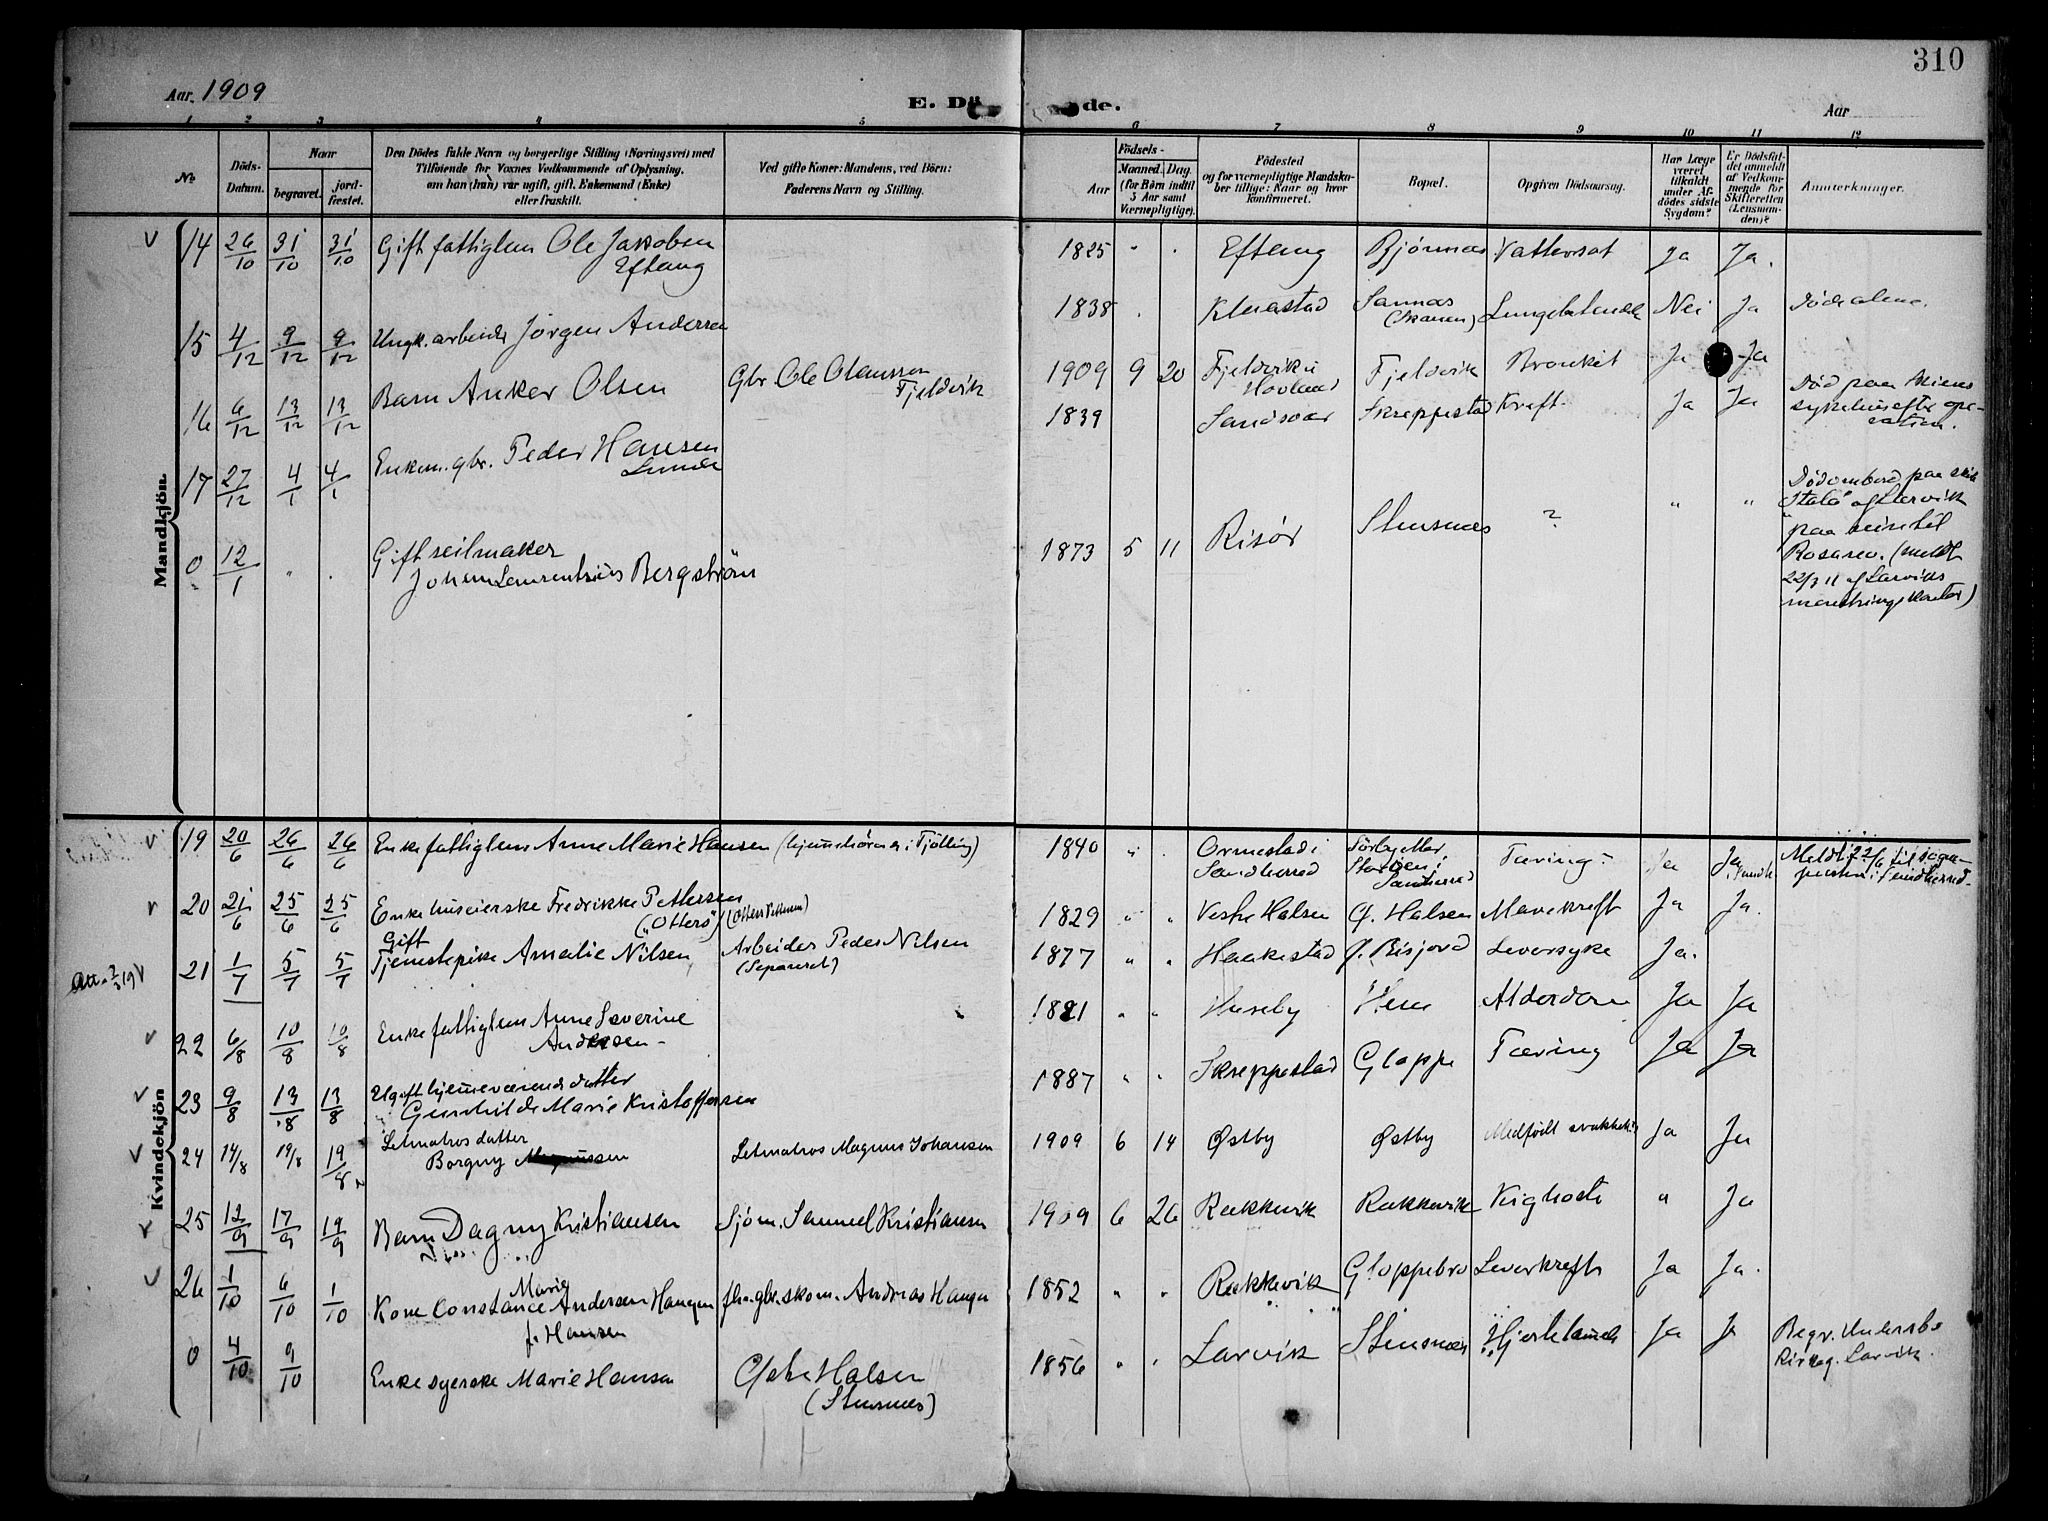 310
Aar 1909
E. Dö de.
Aar
1 2 3 4 5 6 7 8 9 10 11 12
No
Döds-Datum.
Naar
begravet.
jordfæstet.
Den Dödes fulde Navn og borgerlige Stilling (Næringsvei) med
Tilföiende for Voxnes Vedkommende af Oplysning,
om han (hun) var ugift, gift, Enkemand (Enke)
eller fraskilt.
Ved gifte Koner: Mandens, ved Börn:
Faderens Navn og Stilling.
Aar
Födsels-
Maaned. Dag.
(for Börn indtil
5 Aar samt
Værnepligtige).
Födested
og for værnepligtige Mandskaber tillige: Naar og hvor
konfirmeret.
Bopæl.
Opgiven Dödsaarsag.
Har Læge
været
tilkaldt
under Afdödes sidste
Sygdom?
Er Dödsfaldet anmeldt
af Vedkommende for
Skifteretten
(Lensmanden)?
Anmærkninger.
Mandkjön.
14 26/10 31/10 31/10 Gift fattiglem Ole Jakobsen
Eftang
1825 " . Eftang Bjønnes Vattersot Ja Ja.
15 4/12 9/12 9/12 Ungk. arbeider Jørgen Andersen
1838 . . Klaastad Sannas
(Skauen) Lungebetændelse Nei Ja Døde alene.
16 6/12 13/12 13/12 Barn Anker Olsen Gbr. Ole Olaussen
Fjeldvik
1909 9 20 Fjeldvik i
Hovland Fjeldvik Bronkit Ja Ja
17 27/12 4/1 4/1 Enkem. gbr. Peder Hansen
1839 Sandsvær Skreppestad Kreft. Ja Ja Død paa Skiens
sykehus efter operation.
0 12/1 " . Gift seilmaker
Johan Laurentsius Bergstrøm
1873 5 11 Risør Stensnes ? " " Død ombord paa skib
"Stalø" af Larvik
paa reise til
Rosario. (meldt
22/3 11 af Larviks
mønstringskontor)
Kvindekjön
19 20/6 26/6 26/6 Enke fattiglem Anne Marie Hansen (hjemmehørende i Tjølling)
1840 " . Ormestad i
Sandherred
Sandherred Tæring - Ja Ja
Meldt 22/6 til sogneprest i Sandherred.
20 21/6 25/6 25/6 Enke huseierske Fredrikke Pettersen
("Otterö") (Otter Pettersen)
1829 " " Vestre Halsen Ø. Halsen Mavekreft Ja Ja.
Att. 2/3 19
21 1/7 5/7 5/7 Gift
Tjenestepike Amalie Nilsen Arbeider Peder Nilsen
(Separeret)
1877 " " Haakestad Ø. Bisjord Leversyke Ja.
22 6/8 10/8 10/8 Enke fattiglem Anne Severine
Andersen -
1821 " " Huseby Hem Alderdom Ja Ja
23 9/8 13/8 13/8 Ugift hjemmeværende datter
Gunhilde Marie Kristoffersen
1887 " . Skreppestad Gloppe Tæring Ja Ja
24 14/8 19/8 19/8 Letmatros datter
Borgny Magnussen Letmatros Magnus Johansen
1909 6 14 Østby Østby Medfødt svakhet Ja Ja
25 12/9 17/9 19/9 Barn Dagny Kristiansen Sjøm. Samuel Kristiansen
1909 6 26 Rakkevik Rakkevik Kighoste " Ja
26 1/10 6/10 1/10 Kone Constance Marie Andersen Haugen
f. Hansen fhv. gbr. skom. Andreas Haugen
1852 " . Rakkevik Gloppebro Leverkreft Ja Ja.
0 4/10 9/10 Enke syerske Marie Hansen Østre Halsen
(Stensnes)
1856 " . Larvik Stensnes Hjertelamelse Ja J Begr. Undersbo
Kirkeg. Larvik.